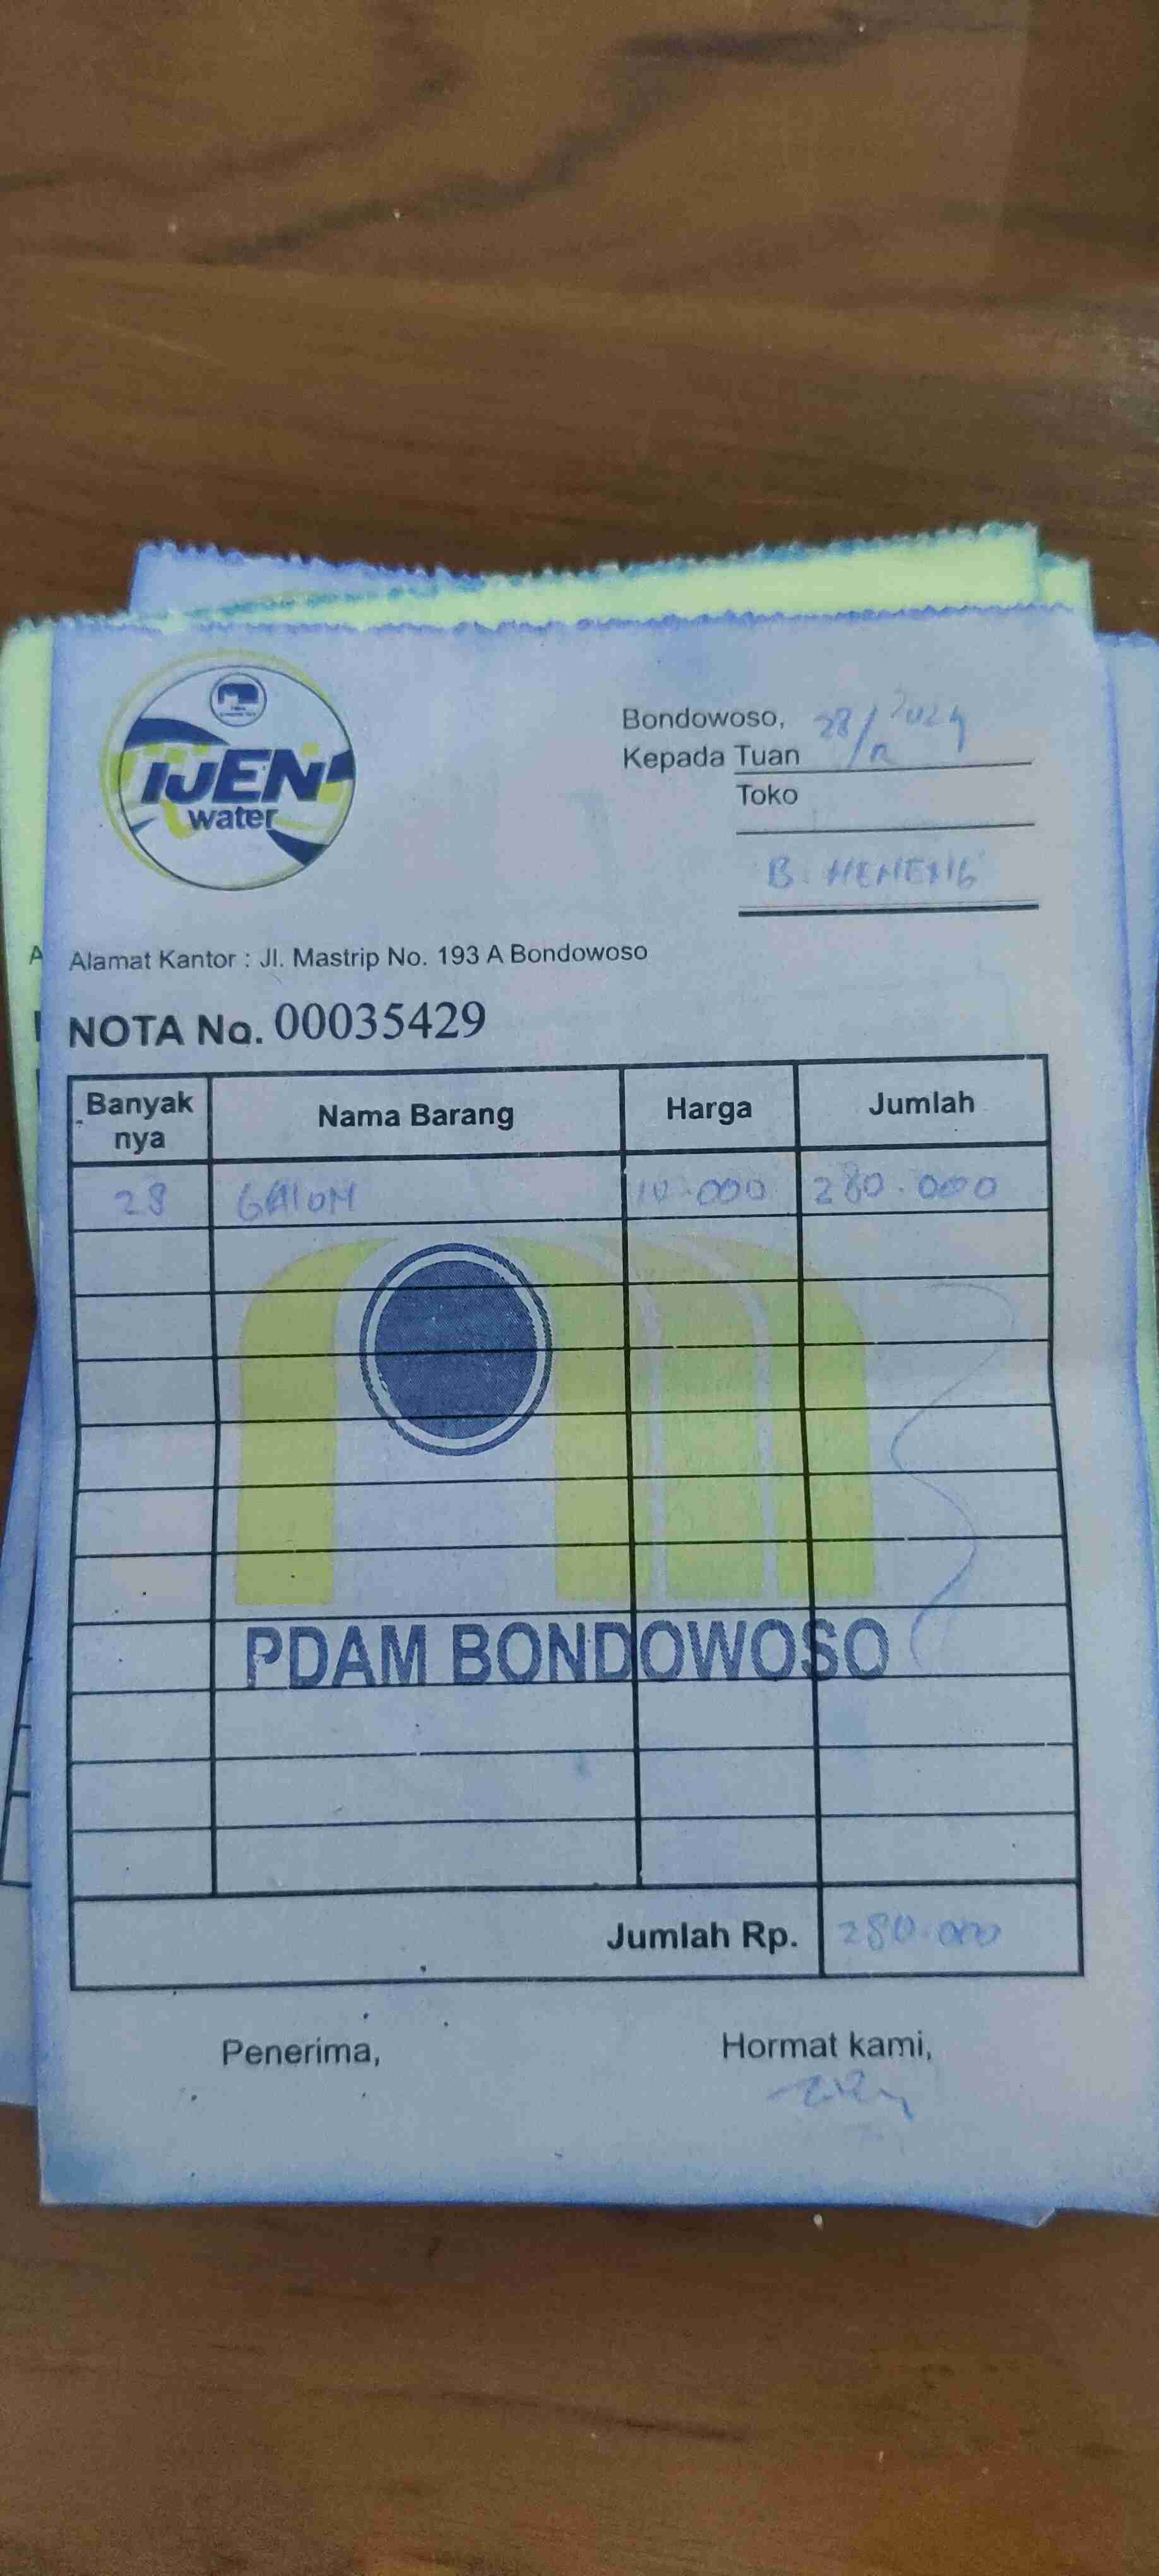 IJEN
water
Bondowoso, 28/12 2024
Kepada Tuan
Toko
B. NENENG
Alamat Kantor : Jl. Mastrip No. 193 A Bondowoso
NOTA No. 00035429
Banyak nya Nama Barang Harga Jumlah
28 GALON 10.000 280.000
PDAM BONDOWOSO
Jumlah Rp. 280.000
Penerima, Hormat kami,